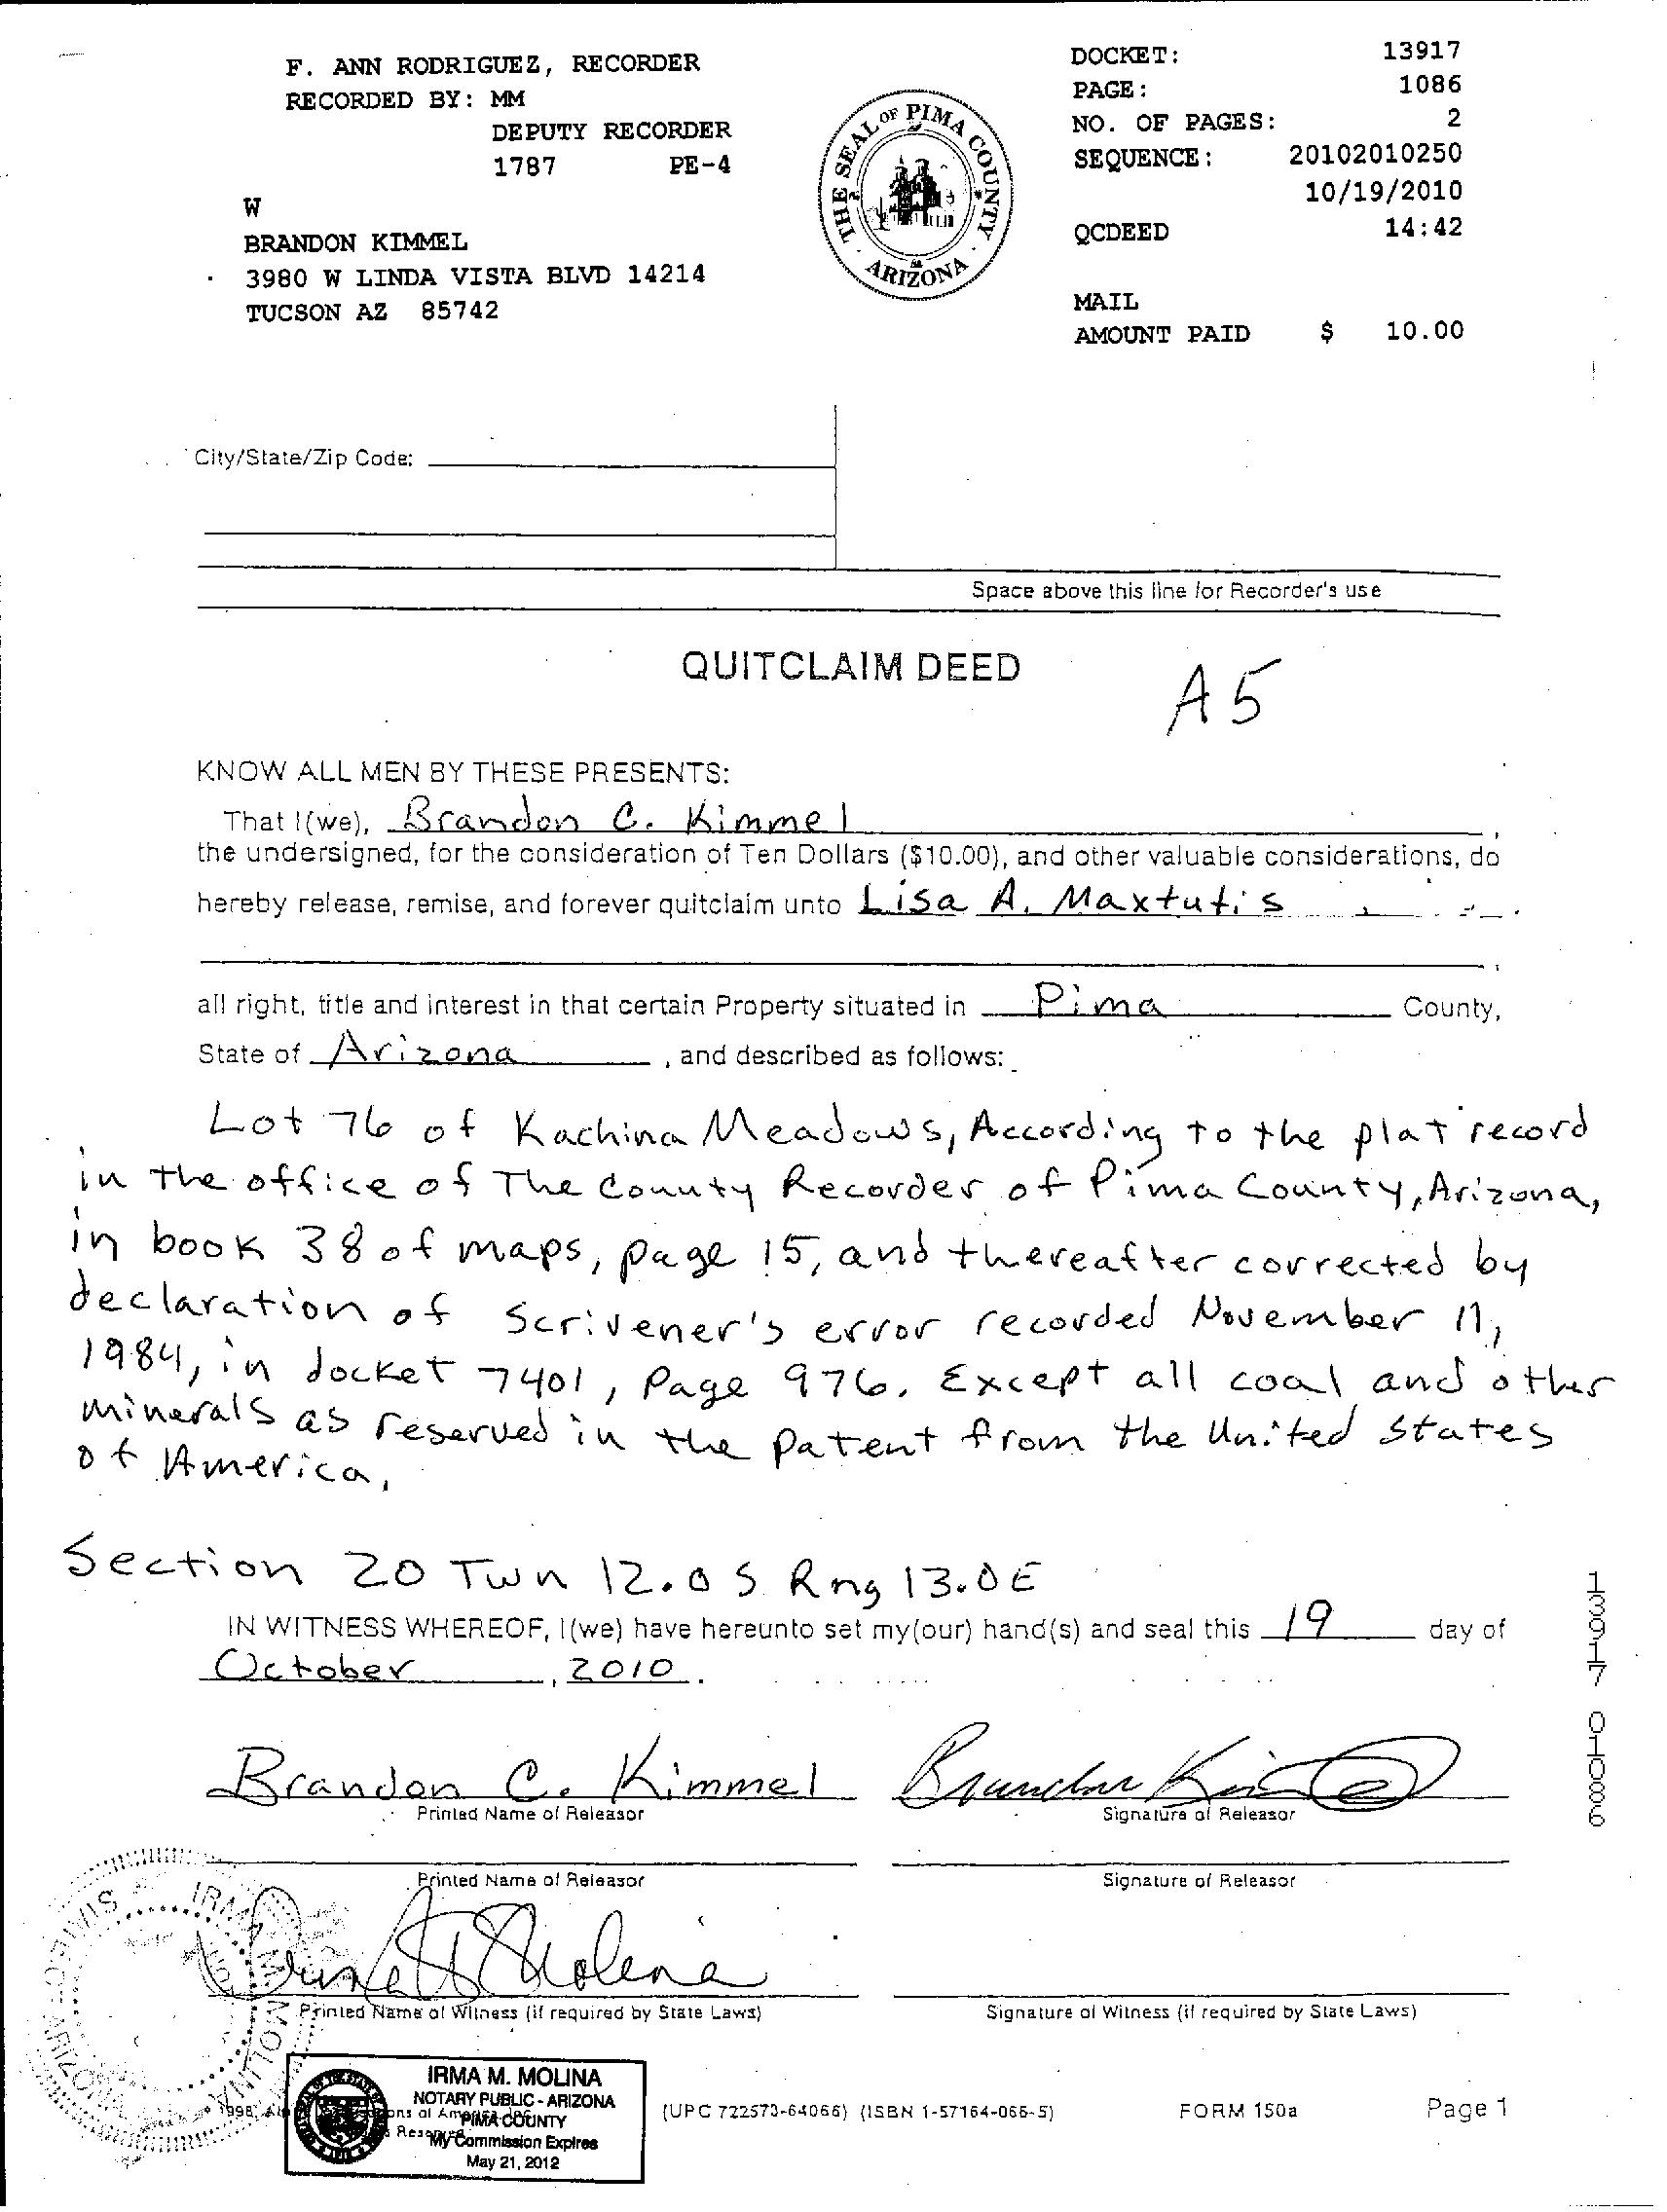 F. ANN RODRIGUEZ, RECORDER
RECORDED BY: MM
DEPUTY RECORDER
1787 PE-4
W
BRANDON KIMMEL
3980 W LINDA VISTA BLVD 14214
TUCSON AZ 85742
THE SEAL OF PIMA COUNTY
ARIZONA
DOCKET: 13917
PAGE: 1086
NO. OF PAGES: 2
SEQUENCE: 20102010250
10/19/2010
QCDEED 14:42
MAIL
AMOUNT PAID $ 10.00
City/State/Zip Code:
Space above this line for Recorder's use
QUITCLAIM DEED
A5
KNOW ALL MEN BY THESE PRESENTS:
That I(we), Brandon C. Kimmel ,
the undersigned, for the consideration of Ten Dollars ($10.00), and other valuable considerations, do
hereby release, remise, and forever quitclaim unto Lisa A. Maxtutis
all right, title and interest in that certain Property situated in Pima County,
State of Arizona , and described as follows:
Lot 76 of Kachina Meadows, According to the plat record
in the office of The County Recorder of Pima County, Arizona,
in book 38 of maps, page 15, and thereafter corrected by
declaration of scrivener's error recorded November 11,
1984, in docket 7401, Page 976. Except all coal and other
minerals as reserved in the patent from the United States
of America.
Section 20 Twn 12.0 S Rng 13.0E
IN WITNESS WHEREOF, I(we) have hereunto set my(our) hand(s) and seal this 19 day of
October , 2010 .
13917 01086
Brandon C. Kimmel Brandon Kimmel
Printed Name of Releasor Signature of Releasor
Printed Name of Releasor Signature of Releasor
Irma M Molina
Printed Name of Witness (if required by State Laws) Signature of Witness (if required by State Laws)
IRMA M. MOLINA
NOTARY PUBLIC - ARIZONA
PIMA COUNTY
My Commission Expires
May 21, 2012
(UPC 722573-64066) (ISBN 1-57164-066-5) FORM 150a Page 1